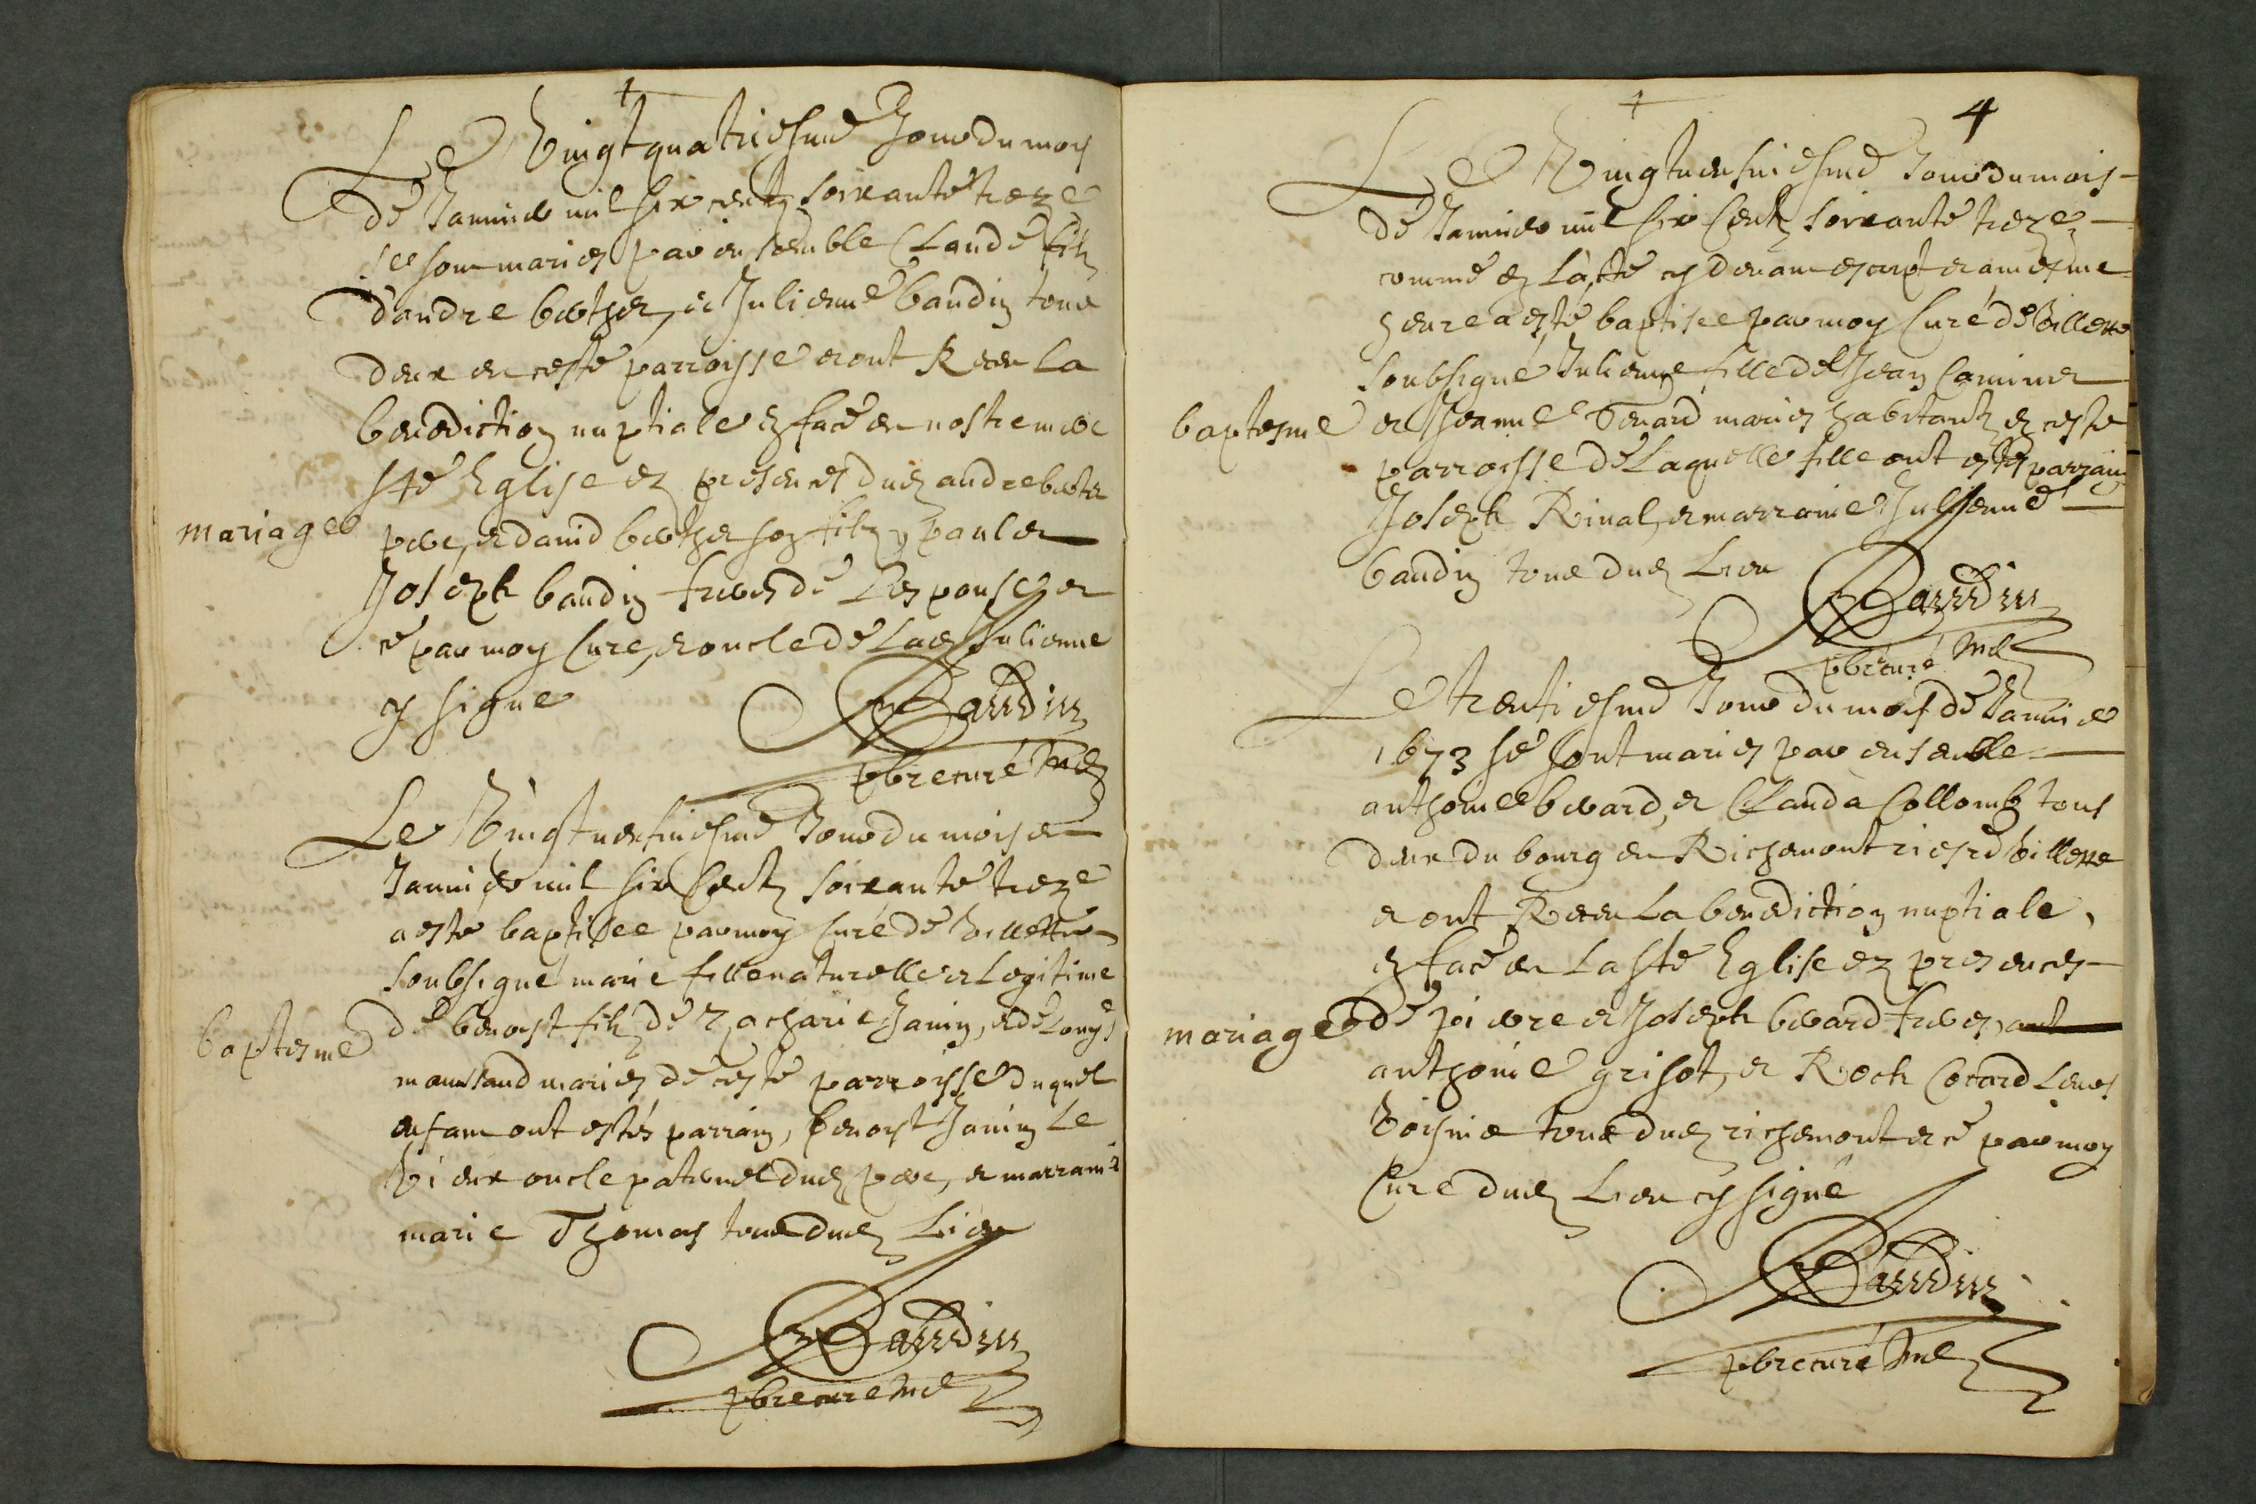 Le Vingtquatriesme Jour du moys
de Januier mil six centz soixante treze
se sont mariés par ensemble Claude filz
d'andre berthet, et Julienne baudin tous
deux de ceste parroisse et ont Receu la
benediction nuptiale en face de nostre mere
ste Eglise ez presences dud andre berthet
mariage
pere, et david berthet son filz, paul et
Joseph baudin freres de L'espouse et
e par moy Curé, et oncle de lad Julienne
cy signé
Baudin
pbre curé
Le Vingtneufuiesme Jour du mois de
Januier mil six Centz soixante treze
a esté baptisée par moy Curé de Villette
soubsigné marie fille naturelle et Legitime
de benoyst filz de Zacharie Janin, et de
baptesme
mariés de ceste parroisse duquel
enfant ont estés parrain, benoyst Janin Le
Vieux oncle paternel dud pere, et marraine
marie Thomas tous dud Lieu
Baudin
pbre curé
4
Le Vingtneufuiesme Jour du mois
de Januier mil six Centz soixante treze
comme en L'acte cy deuant escript et a mesme
heure a esté baptisée par moy Curé de Villette
soubsigné Julienne fille de Jean
baptesme
et Jeanne mariés habitantz en ceste
parroisse de Laquelle fille ont estés parrain
Joseph Rinal, et marraine Julienne
baudin tous dud Lieu
Baudin
pbre curé
Le trentiesme Jour du mois de Januier
1673 se sont mariés par ensemble
anthoine berard, et Clauda Collomb tous
deux du bourg de Richemont riesre Villette
et ont Receu La benediction nuptiale,
en face de La ste Eglise ez presences
mariage
de pierre et Joseph berard freres,
anthoine grisot, et Roch Cocard Leurs
Voisins tous dud richemont et e par moy
Curé dud Lieu cy signé
Baudin
pbre curé